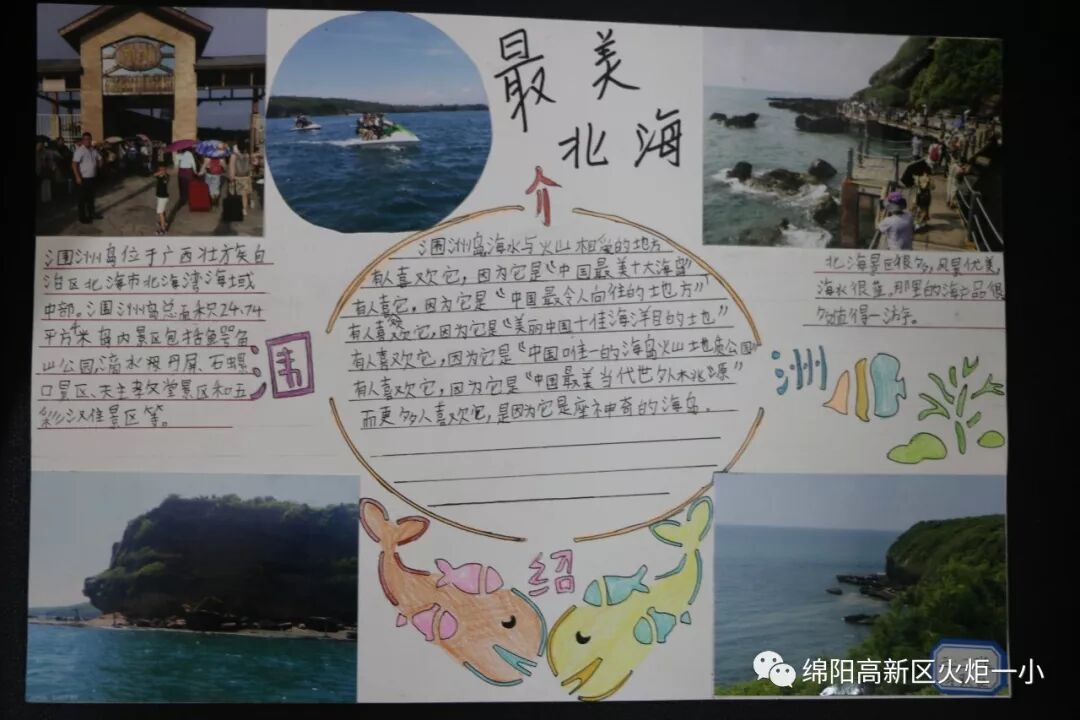 最美
北海
介
涠洲岛位于广西壮族自
治区北海市北海湾海域
中部。涠洲岛总面积24.74
平方千米 岛内景区包括鳄鱼
山公园、滴水丹屏、石螺
口景区、天主教堂景区和五
彩滩景区等。
涠洲岛,海水与火山相爱的地方
有人喜欢它，因为它是“中国最美十大海岛”
有人喜它，因为它是“中国最令人向往的地方”
有人喜欢它，因为它是“美丽中国十佳海洋目的地”
有人喜欢它，因为它是“中国唯一的海岛火山地质公园”
有人喜欢它，因为它是“中国最美当代世外桃源”
而更多人喜欢它，是因为它是座神奇的海岛。
北海景区很多，风景优美，
海水很蓝，那里的海产品很
多值得一游。
涠
洲
绍
绵阳高新区火炬一小